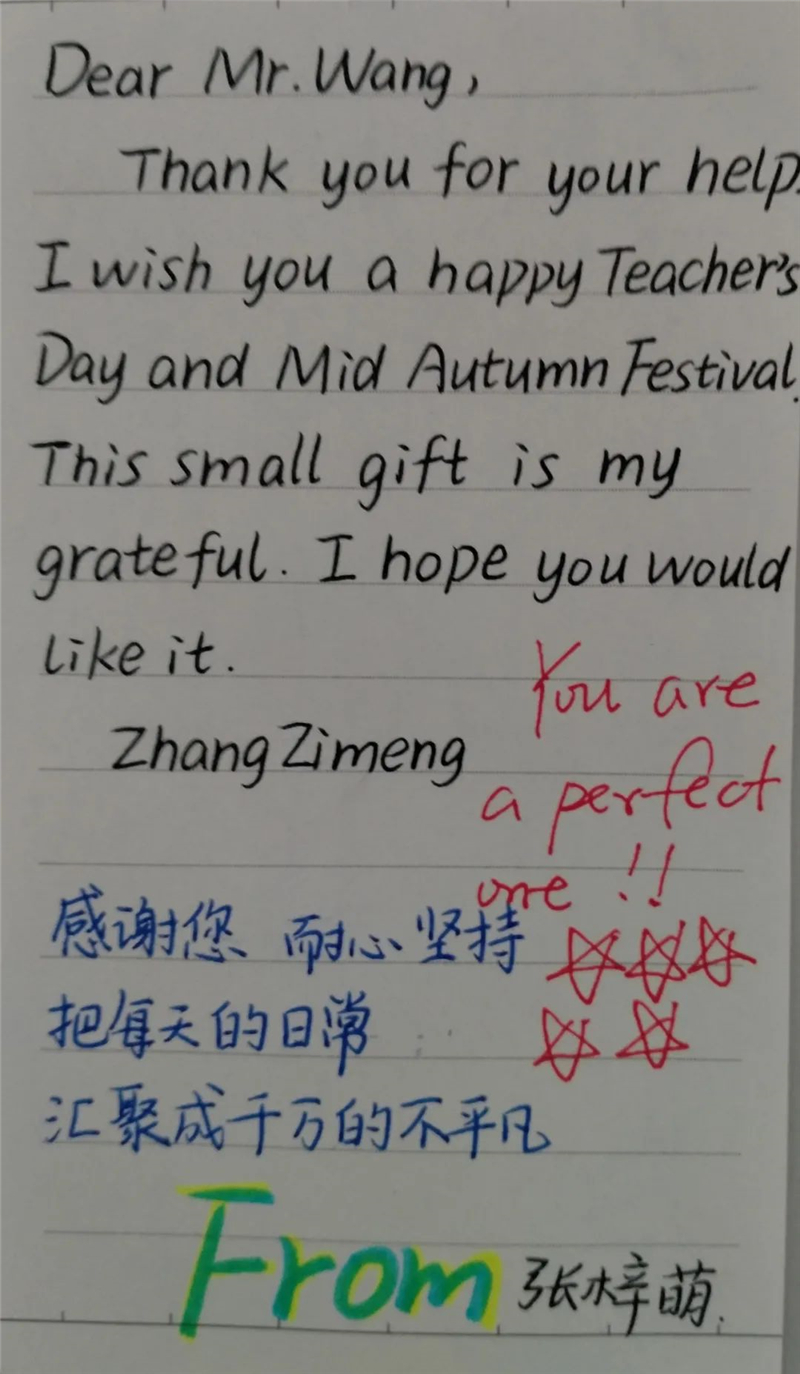 Dear Mr. Wang,
Thank you for your help.
I wish you a happy Teacher's
Day and Mid Autumn Festival.
This small gift is my
grateful. I hope you would
like it.
Zhang Zimeng
You are
a perfect
one !!
感谢您 耐心坚持
把每天的日常
汇聚成千万的不平凡
From 张梓萌.